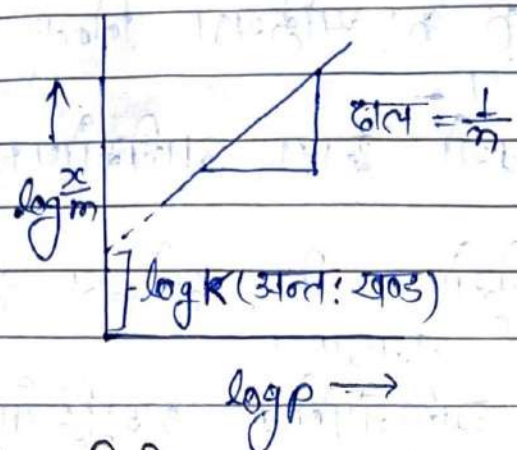 ढाल = 1/n
log x/m
log K (अन्त: खण्ड)
log p →